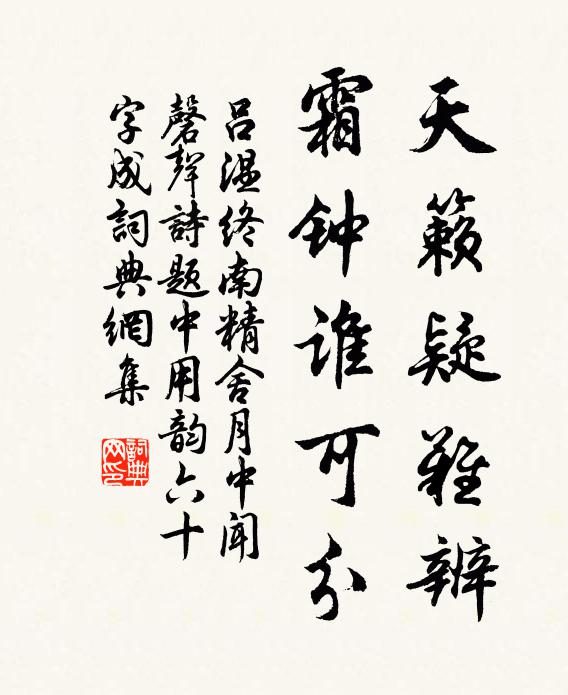 天籁疑難辨
霜钟谁可分
吕温终南精舍月中闻
磬聲詩题中用韵六十
字成詞典網集
詞典网印